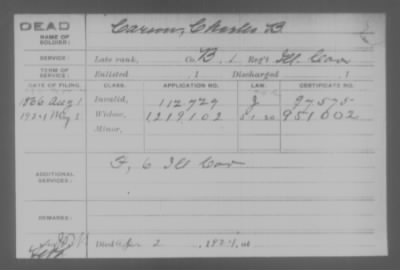 DEAD
NAME OF SOLDIER: Carson, Charles B.
SERVICE: Late rank, Co. B, 1 Reg't Ill. Cav
TERM OF SERVICE: Enlisted , 1 Discharged , 1
DATE OF FILING. CLASS. APPLICATION NO. LAW. CERTIFICATE NO.
1886 Aug 1 Invalid, 112,729 97575
1924 May 2 Widow, 1219102 5 1 20 951002
Minor,
ADDITIONAL SERVICES: F, 6 Ill Cav
REMARKS:
Died Apr 2 , 1924, at